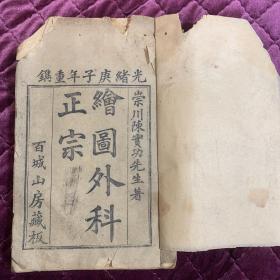 光緒庚子年重鐫
崇川陳實功先生著
繪圖外科
正宗
百城山房藏板